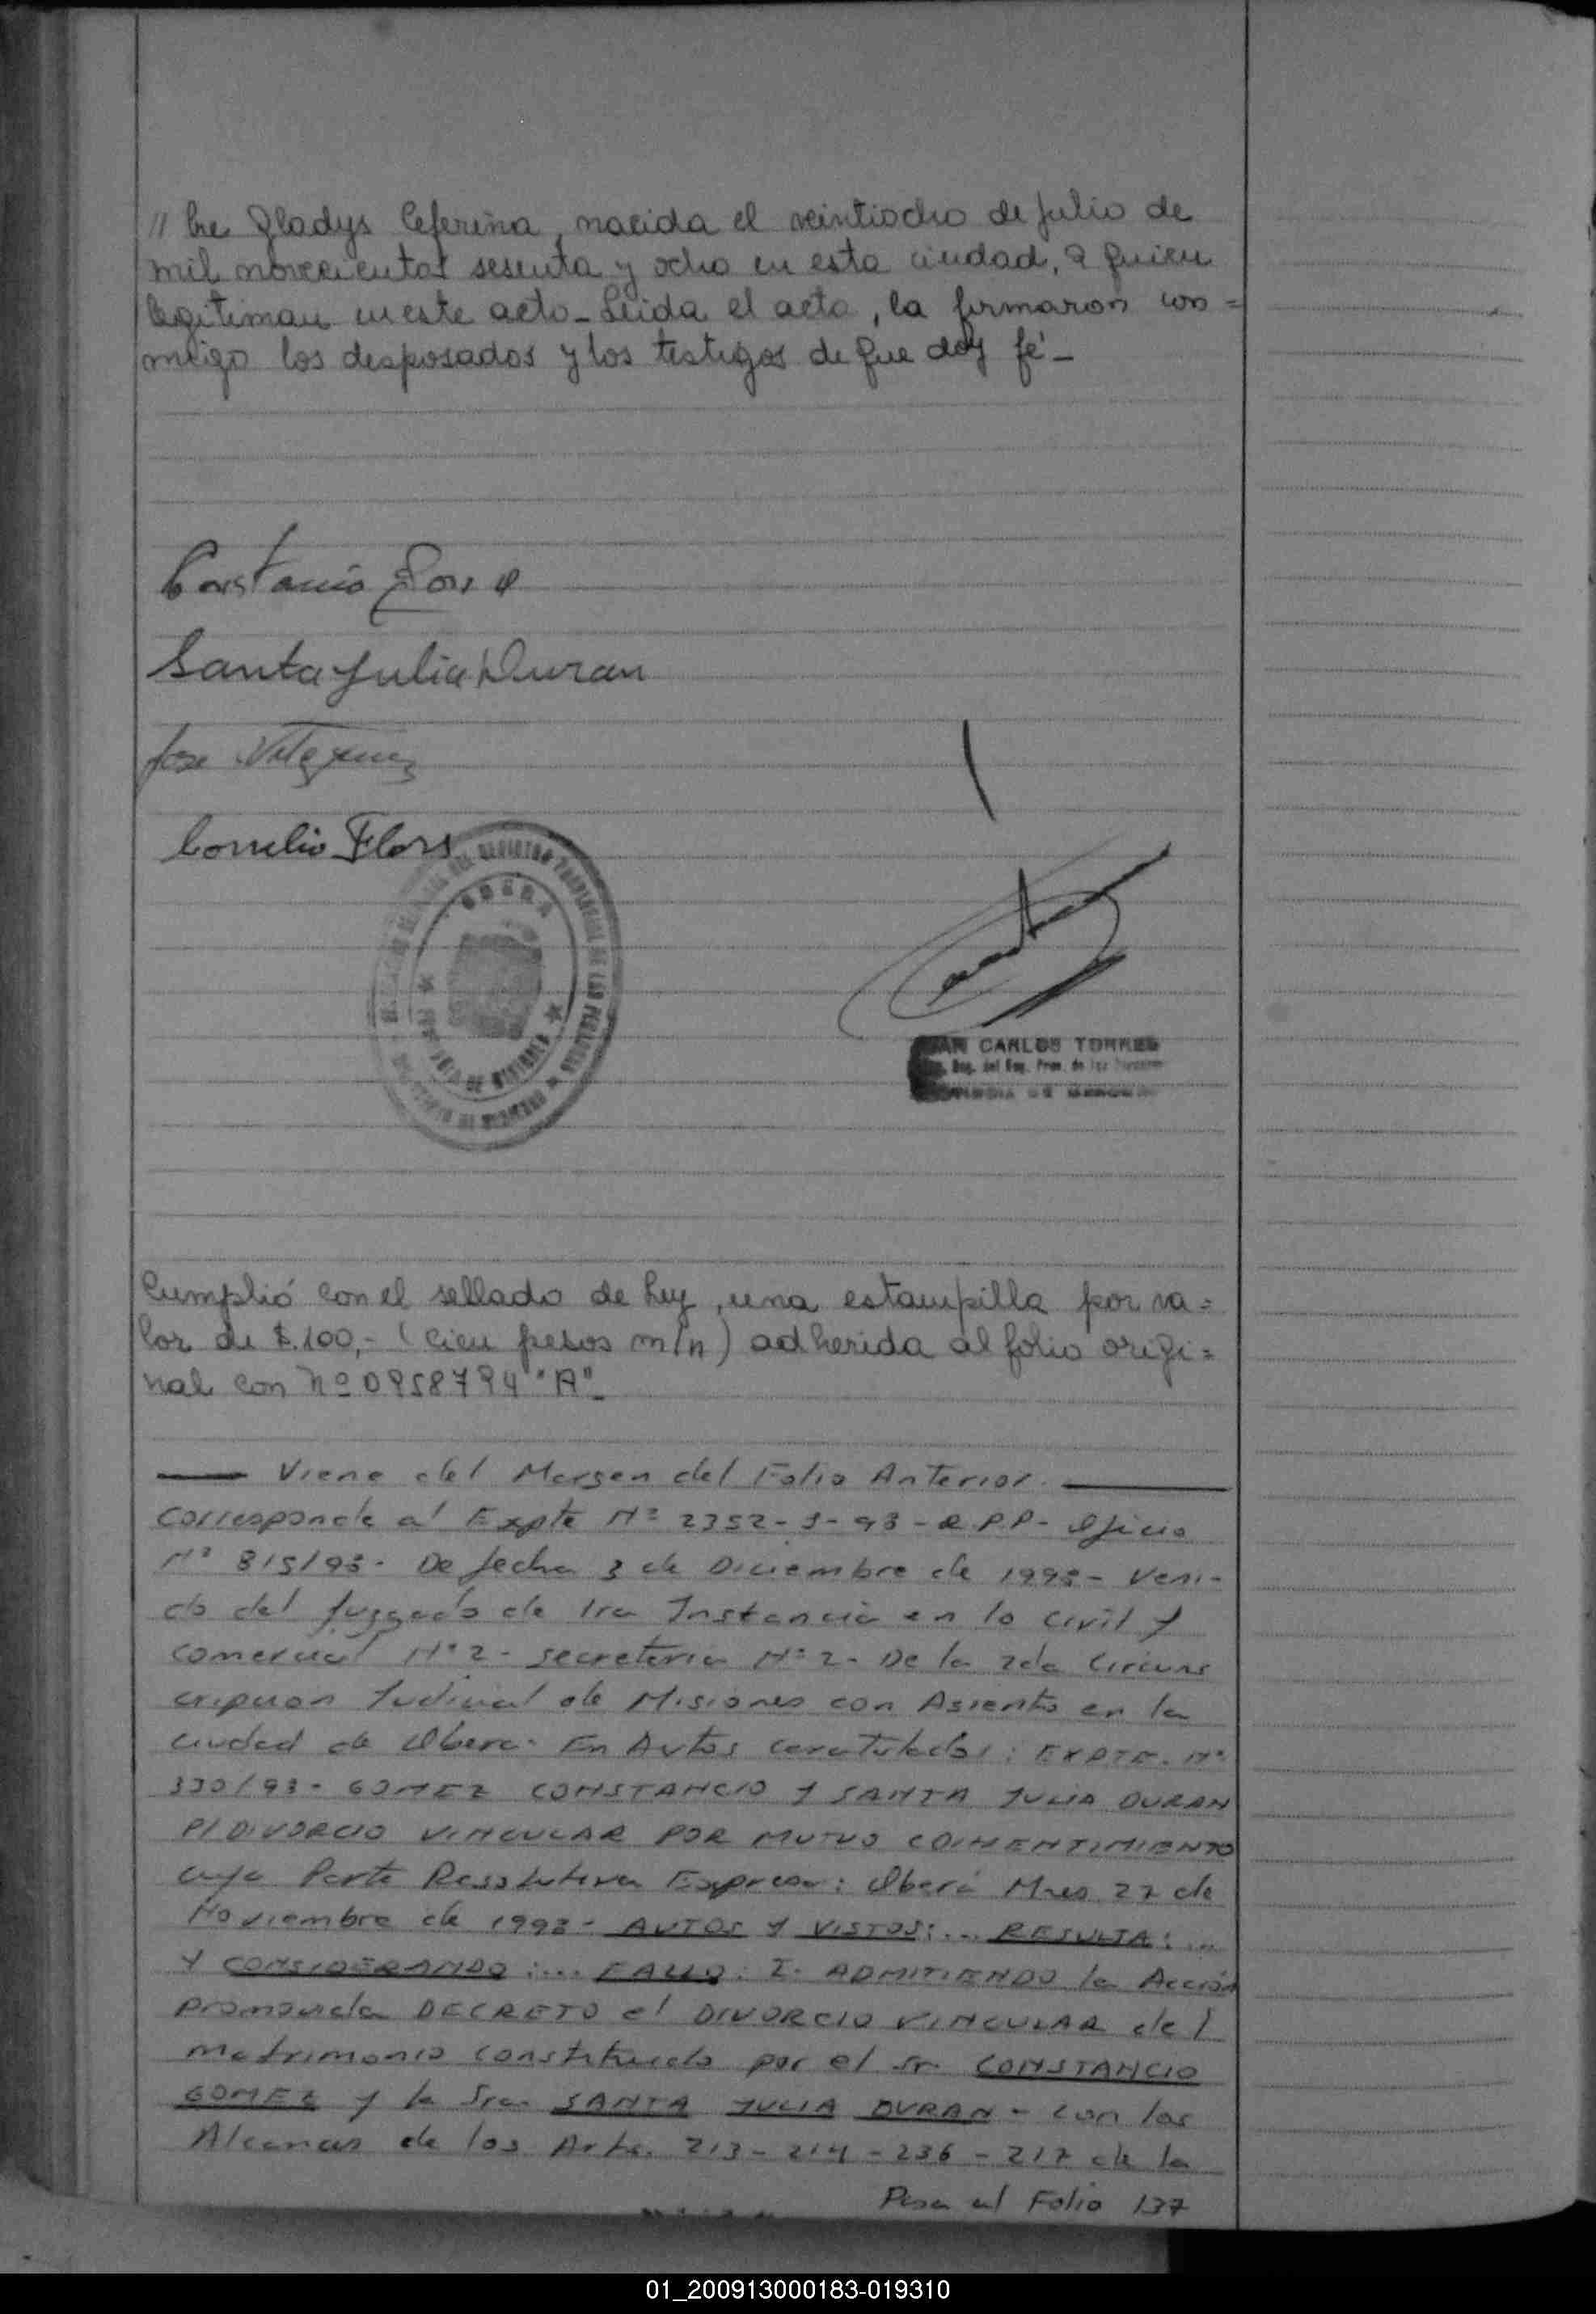 // bre Gladys Ceferina, nacida el veintiocho de julio de
mil novecientos sesenta y ocho en esta ciudad, a quien
legitiman en este acto_ Leida el acta, la firmaron con =
migo los desposados y los testigos de que doy fé_
Constancio
Santa Julia Duran
Jose
Cornelio Flors
OBERA
CARLOS TORRES
Cumplió con el sellado de Ley, una estampilla por va =
lor de $.100,- (cien pesos m/n) adherida al folio origi =
nal con Nº 0958794 "A"_
Viene del Margen del Folio Anterior.
Corresponde al Expte Nº 2352-S-93-R.P.P- Oficio
Nº 815/93- De fecha 3 de Diciembre de 1993- Veni-
do del Juzgado de 1ra Instancia en lo Civil y
Comercial Nº 2- Secretaria Nº 2- De la 2da Circuns
cripcion Judicial de Misiones con Asiento en la
Ciudad de Obera- En Autos caratulados: EXPTE. Nº
330/93- GOMEZ CONSTANCIO Y SANTA JULIA DURAN
P/DIVORCIO VINCULAR POR MUTUO CONSENTIMIENTO
cuya Parte Resolutiva Expresa: Oberá Mnes 22 de
Noviembre de 1993- AUTOS Y VISTOS:... RESULTA:...
Y CONSIDERANDO:... FALLO: I- ADMITIENDO la Acción
promovida DECRETO el DIVORCIO VINCULAR del
matrimonio constituido por el Sr. CONSTANCIO
GOMEZ y la Sra. SANTA JULIA DURAN- con los
Alcances de los Arts. 213-214-236-217 de la
Pasa al Folio 137
01_200913000183-019310